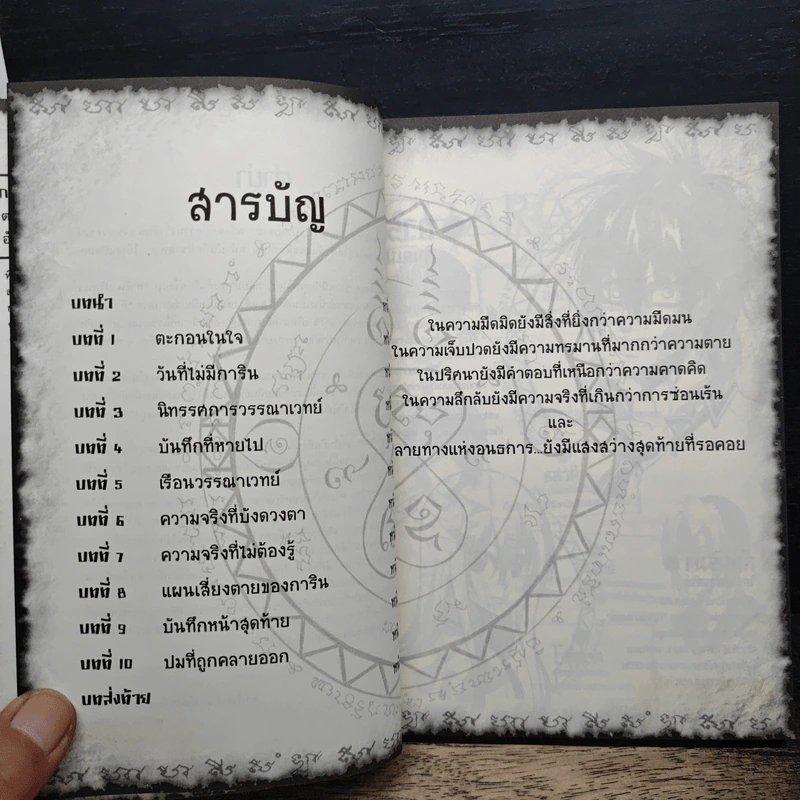 สารบัญ
บทนำ
บทที่ 1 ตะกอนในใจ
บทที่ 2 วันที่ไม่มีการิน
บทที่ 3 นิทรรศการวรรณาเวทย์
บทที่ 4 บันทึกที่หายไป
บทที่ 5 เรือนวรรณาเวทย์
บทที่ 6 ความจริงที่บังดวงตา
บทที่ 7 ความจริงที่ไม่ต้องรู้
บทที่ 8 แผนเสี่ยงตายของการิน
บทที่ 9 บันทึกหน้าสุดท้าย
บทที่ 10 ปมที่ถูกคลายออก
บทส่งท้าย
ในความมืดมิดยังมีสิ่งที่ยิ่งกว่าความมืดมน
ในความเจ็บปวดยังมีความทรมานที่มากกว่าความตาย
ในปริศนายังมีคำตอบที่เหนือกว่าความคาดคิด
ในความลึกลับยังมีความจริงที่เกินกว่าการซ่อนเร้น
และ
ลายทางแห่งอนธการ...ยังมีแสงสว่างสุดท้ายที่รอคอย